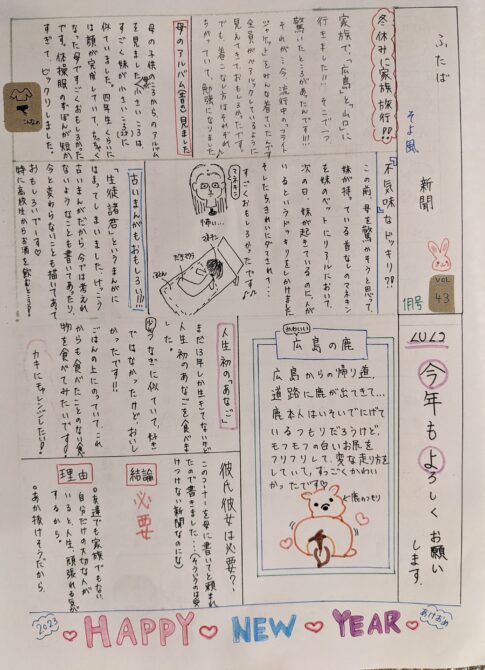 ふたば
そよ風
新聞
VOL
43
1月号
冬休みに家族旅行!!
家族で、「広島」と「山口」に
行きました!!! そこで一つ
驚いたところがあったんです!!!
それが…今、流行中の「フライト
ジャケット」をみんな着ていたんです。
全員がペアルックしているように
見えてておもしろかったです。
でも、着こなし方はそれぞれ
ちがっていて、勉強になりました
母のアルバム(昔)見ました
母の子供のころからのアルバム
を見ました。小さいころは、
すごく妹が小さいころに
似ていました。四年生くらいに
は顔が完成していて、もう
なった母ですごくおもしろかった
です。体操服のずぼんが短か
すぎて、ビックリしました。
こんなの
不気味なドッキリ?!
この前、母を驚かそうと思って、
妹が持っている首なのマネキン
を妹のベットにリアルにおいて、
次の日、妹が起きているのに人が
いるというドッキリをしかけました
そしたら、きれいにだまされて…
すごくおもしろかったです
マネキン
怖い…
古いまんがもおもしろい!!!
「生徒諸君」というまんがに
はまってしまいました。けっこう
古いまんがだから、今では考えれ
ないようなことも書いてあったり、
今と変わらないことも描いてあって
おもしろいでーす♡
特に高校生からお酒を飲むところ!
2023
今年もよろしくお願い
します。
かわいい
広島の鹿
広島からの帰り道、
道路に鹿が出てきて…
鹿本人はいそいでにげて
いるつもりだろうけど、
モフモフの白いお尻を
フリフリして、変な走り方を
していて、すっごくかわい
かったです♡
鹿のつもり
人生初の「あなご」
まだ13年しか生きてないけど
人生初のあなごを食べま
した。
少しうなぎに似ていて、好き
ではなかったけど、おいし
かったです!!
ごはんの上にのっていて、これ
からも食べたことのない食べ
物を食べてみたいです!
カキにもチャレンジしたい!!
彼氏彼女は必要?～
このコーナーを母に書いてと頼まれ
たので書きました…(そういうのは受
けつけない新聞なのにな)
結論
必要
理由
◎友達でも家族でもない、
自分だけの大切な人が
いると、人生、頑張れる気が
するから。
◎あか抜けそうだから、
2023
HAPPY NEW YEAR
あけおめ